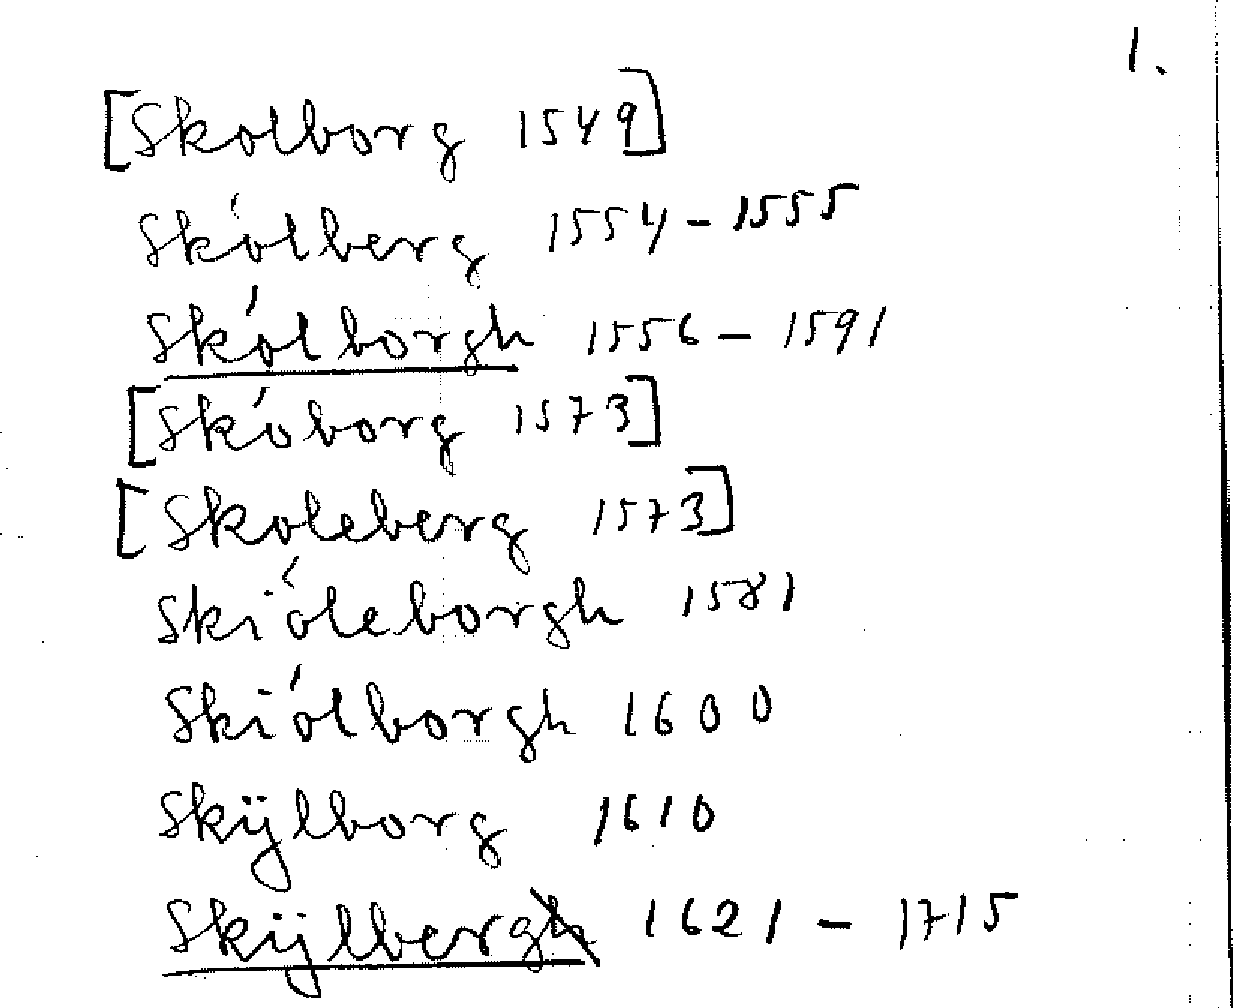 1.
[Skolborg 1549]
Skólberg 1554 - 1555
Skólborgh 1556 - 1591
[Skóborg 1573]
[Skoleberg 1573]
Skióleborgh 1581
Skiólborgh 1600
Skÿlborg 1610
Skÿlberg 1621 - 1715